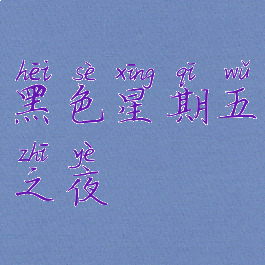 hēi sè xīng qī wǔ
黑色星期五
zhī yè
之夜